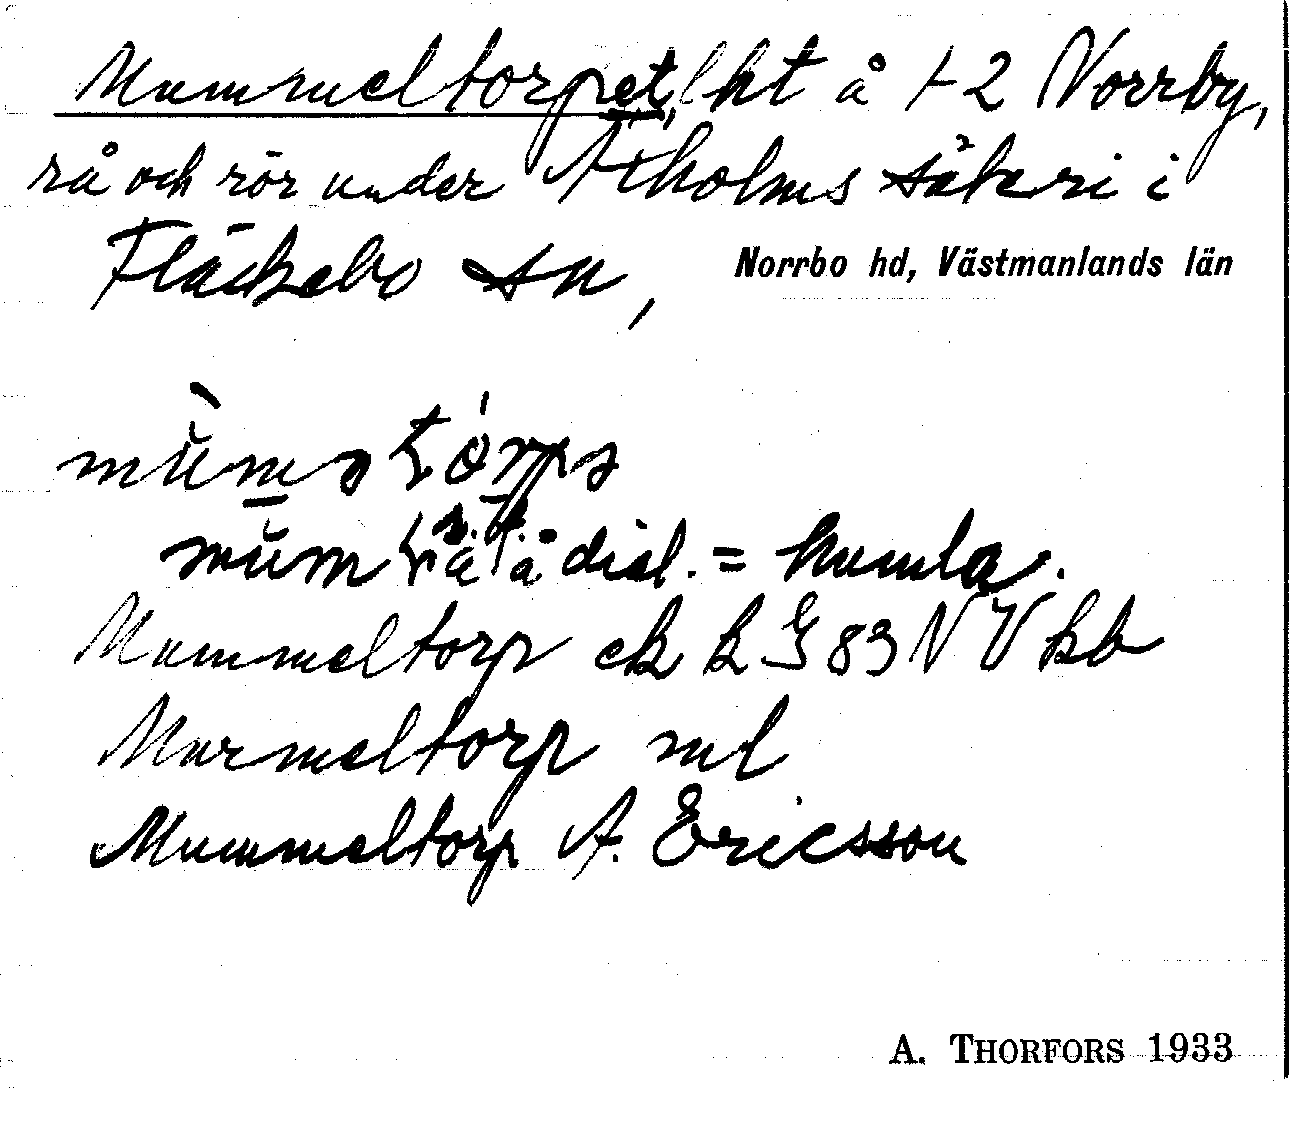 Mummeltorpet, lht å 1-2 Norrby,
rå och rör under Arholms säteri i
Fläckebo sn,
Norrbo hd, Västmanlands län
dial. = humla.
Mummeltorp ek k G 83 NV kb
Murmeltorp ml
Mummeltorp A. Ericsson
A. THORFORS 1933